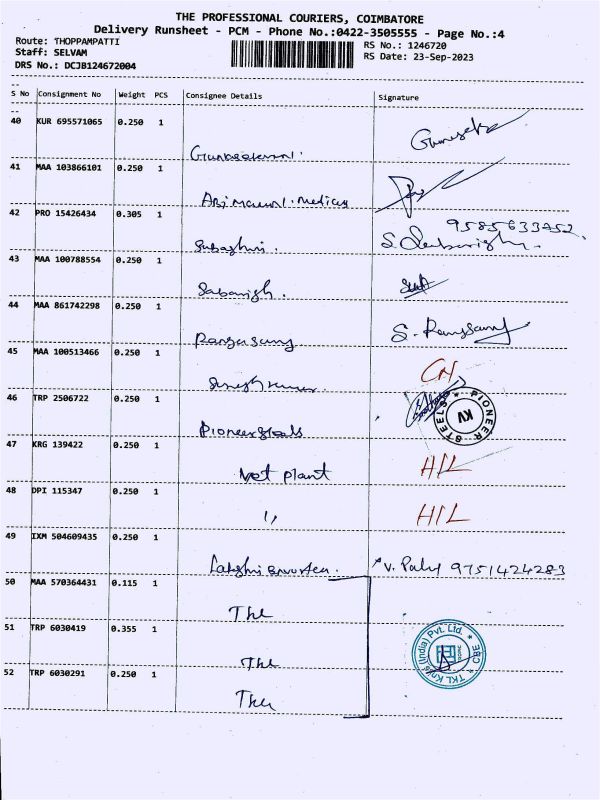 THE PROFESSIONAL COURIERS, COIMBATORE
Delivery Runsheet - PCM - Phone No.:0422-3505555 - Page No.:4
Route: THOPPAMPATTI
Staff: SELVAM
DRS No.: DCJB124672004
RS No.: 1246720
RS Date: 23-Sep-2023
S No Consignment No Weight PCS Consignee Details Signature
40 KUR 695571065 0.250 1
41 MAA 103866101 0.250 1
Medicus
42 PRO 15426434 0.305 1
9585633252
Subashini.
43 MAA 100788554 0.250 1
Sabarish.
44 MAA 861742298 0.250 1
Rangasamy S. Rangsamy
45 MAA 100513466 0.250 1
CN
46 TRP 2506722 0.250 1
PIONEER STEELS KV
Pioneer
47 KRG 139422 0.250 1
Net plant H/L
48 DPI 115347 0.250 1
" H/L
49 IXM 504609435 0.250 1
V. Palu 9751424283
50 MAA 570364431 0.115 1
The
51 TRP 6030419 0.355 1
The
TKL Knits (India) Pvt. Ltd. * CBE *
52 TRP 6030291 0.250 1
The